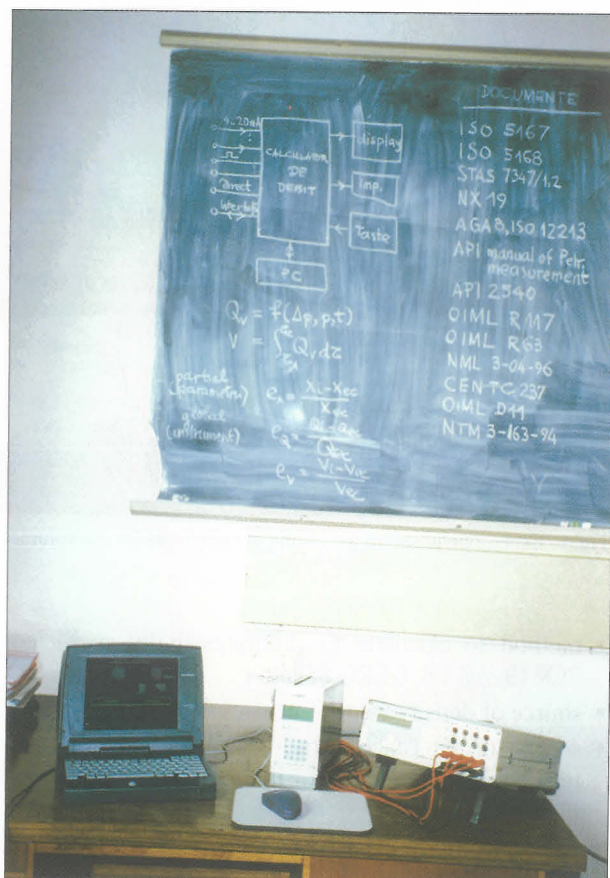 4..20mA
Direct
CALCULATOR
DE
DEBIT
display
imp.
Taste
PC
Qv = f(Δp, p, t)
V = ∫ Qv dτ
partial
(parameters)
global
(instrument)
Xi - Xec
Xec
eQ =
eV = Vi - Vec
Vec
DOCUMENTE
ISO 5167
ISO 5168
STAS 7347/1,2
NX 19
AGA 8, ISO 12213
API manual of Petr.
measurement
API 2540
OIML R117
OIML R63
NML 3-04-96
CEN TC 237
OIML D11
NTM 3-163-94